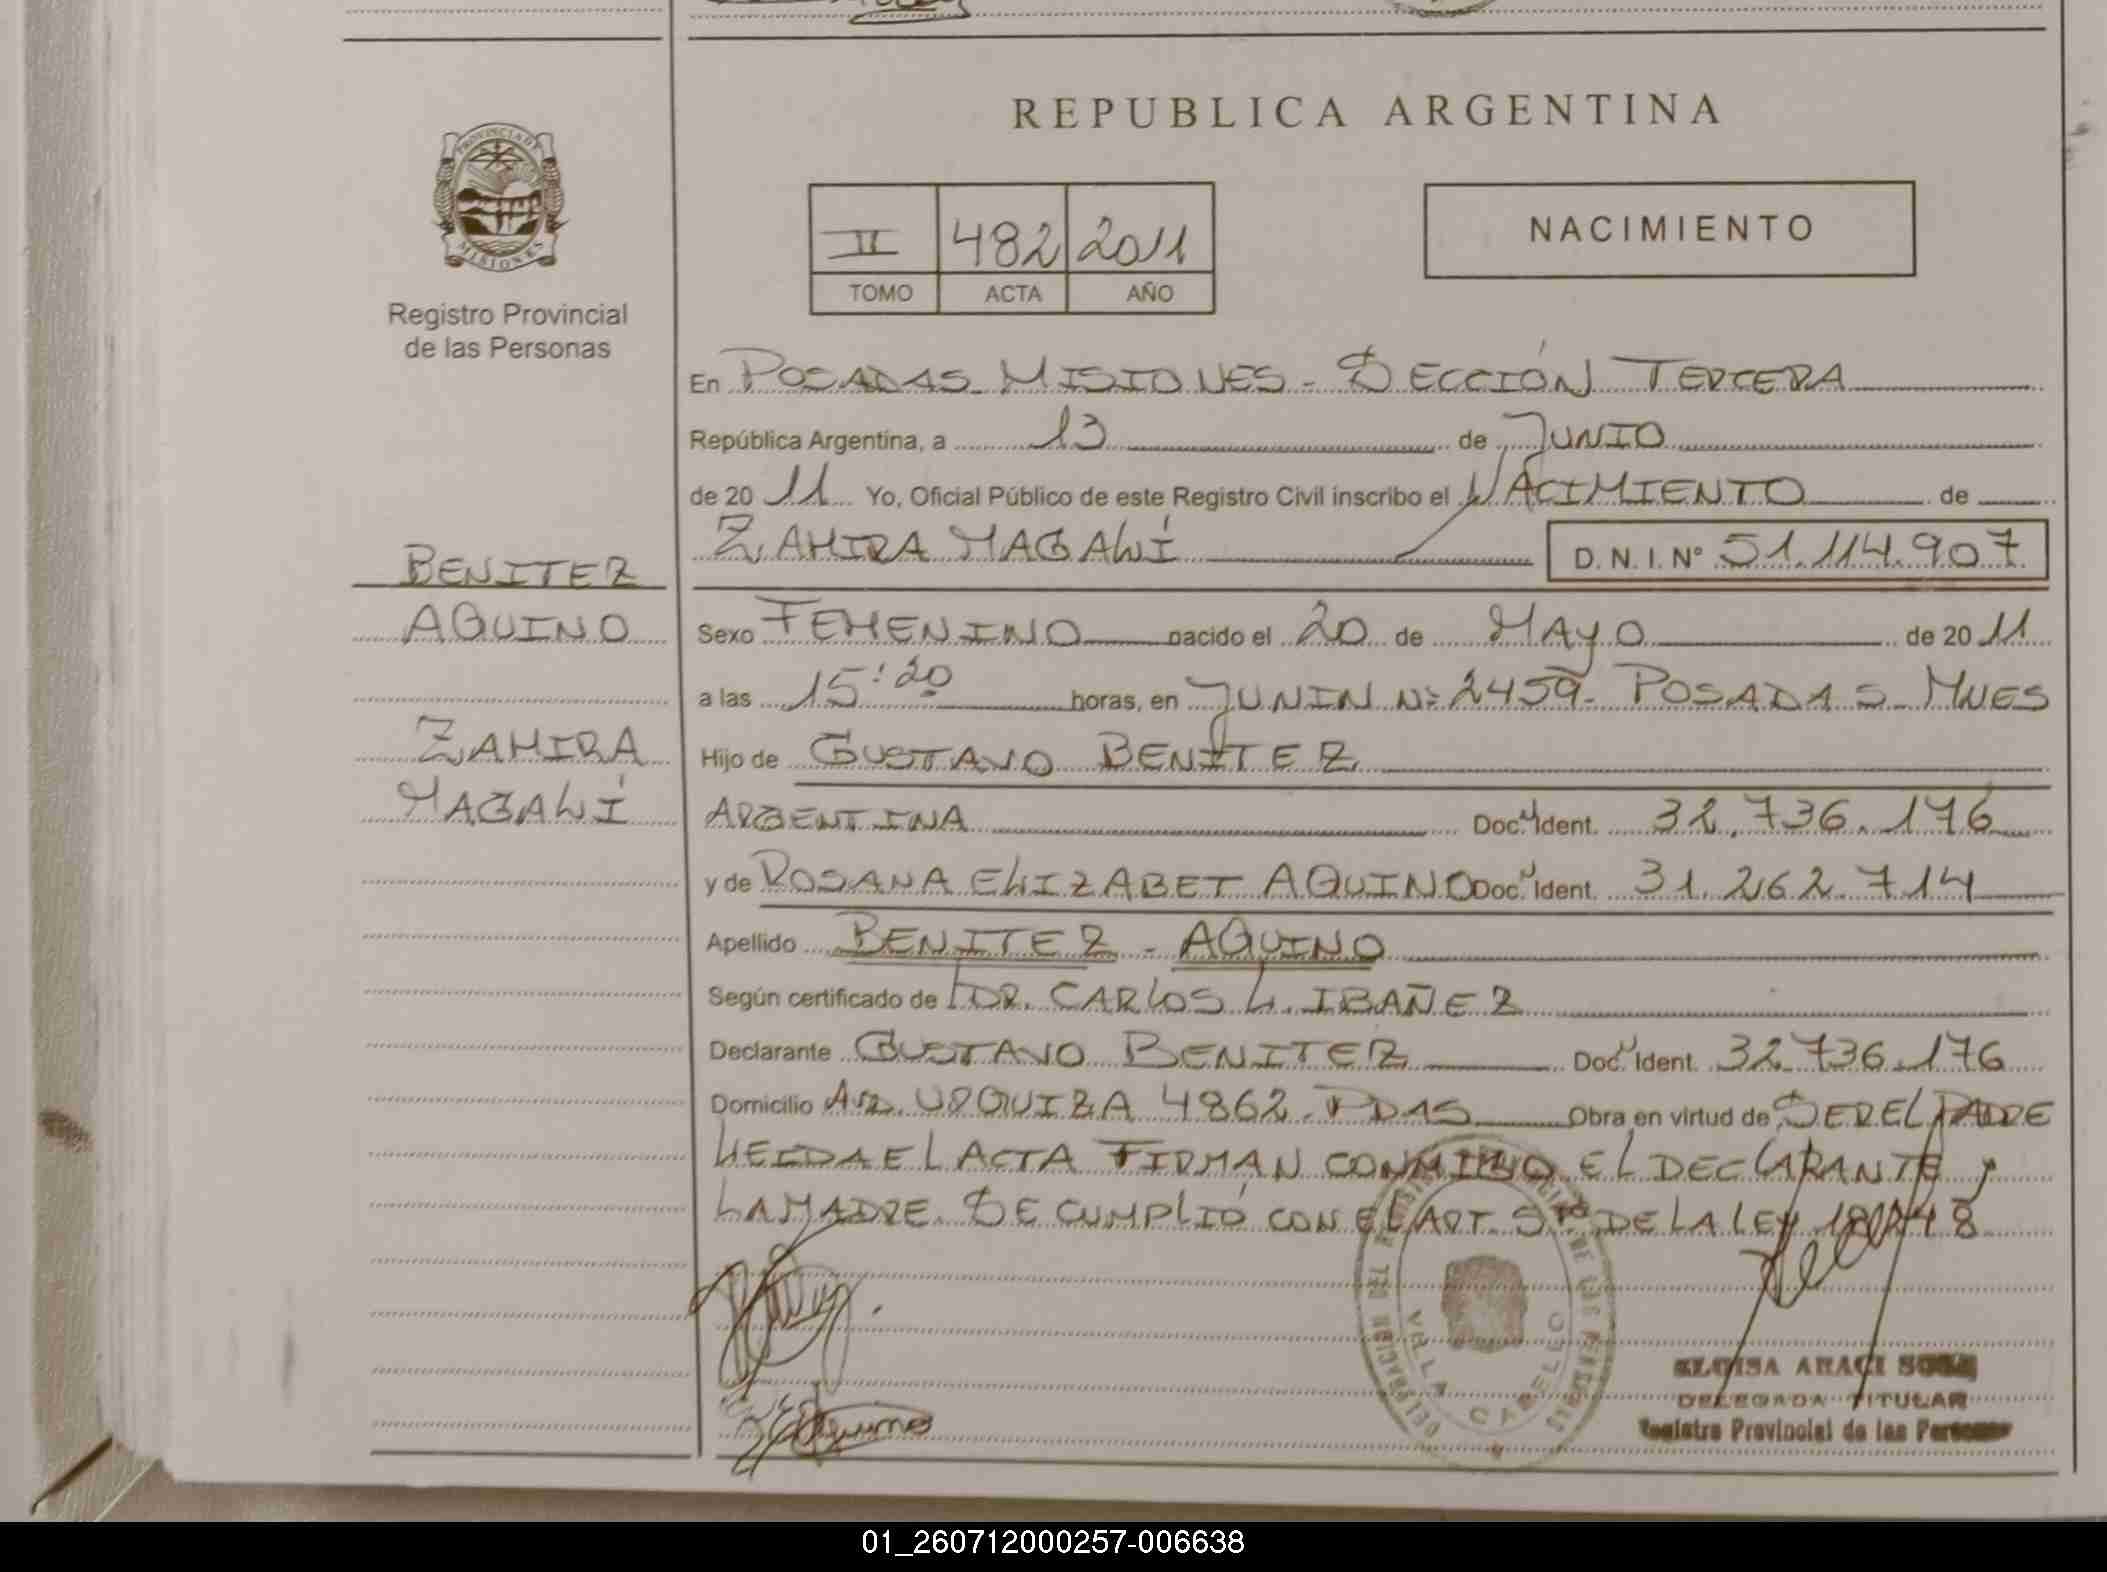 REPUBLICA ARGENTINA
PROVINCIA DE
MISIONES
Registro Provincial
de las Personas
II 482 2011
TOMO ACTA AÑO
NACIMIENTO
En POSADAS MISIONES - SECCIÓN TERCERA
República Argentina, a 13 de JUNIO
de 20 11 Yo, Oficial Público de este Registro Civil inscribo el NACIMIENTO de
ZAHIRA MAGALÍ D. N. I. Nº 51.114.907
BENITEZ
AQUINO
ZAHIRA
MAGALÍ
Sexo FEMENINO nacido el 20 de MAYO de 20 11
a las 15:20 horas, en JUNIN Nº 2459 - POSADAS - MNES
Hijo de GUSTAVO BENITEZ
ARGENTINA Doc. Ident. 32.736.176
y de ROSANA ELIZABET AQUINO Doc. Ident. 31.262.714
Apellido BENITEZ - AQUINO
Según certificado de DR. CARLOS L. IBAÑEZ
Declarante GUSTAVO BENITEZ Doc. Ident. 32.736.176
Domicilio AV. URQUIZA 4862 - PDAS Obra en virtud de SER EL PADRE
LEIDA EL ACTA FIRMAN CONMIGO EL DECLARANTE y
LA MADRE. SE CUMPLIÓ CON EL ART. 5to DE LA LEY 18.248
VILLA CABELLO
ELOISA ARACI SOSA
DELEGADA TITULAR
Registro Provincial de las Personas
01_260712000257-006638